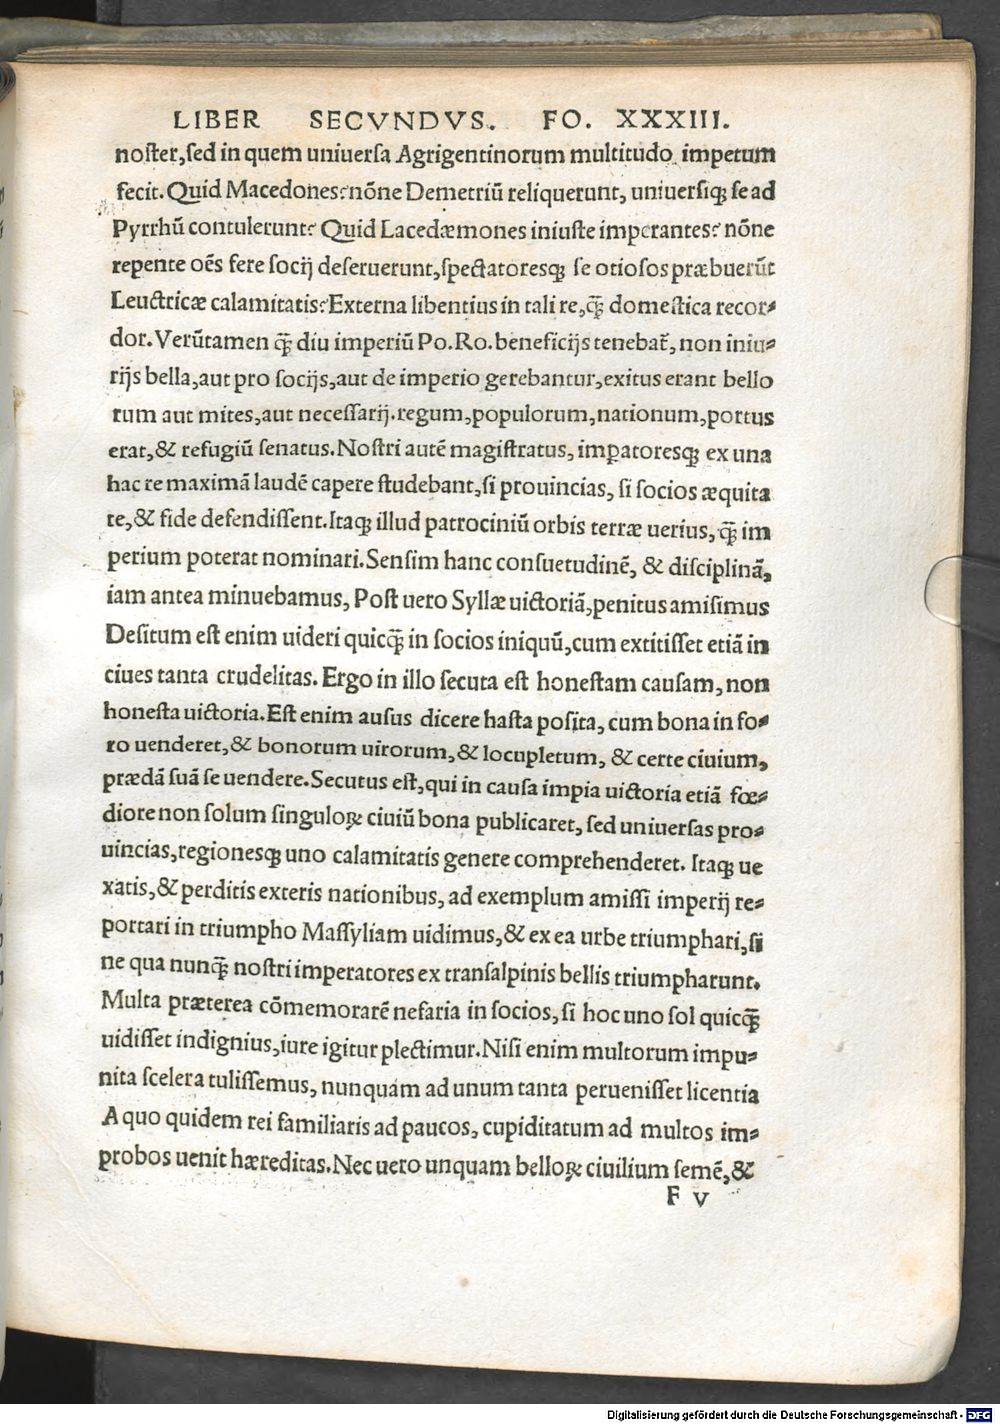 LIBER SECVNDVS. FO. XXXIII.
noſter,ſed in quem uniuerſa Agrigentinorum multitudo impetum
fecit. Quid Macedones?nõne Demetriũ reliquerunt, uniuerſiq; ſe ad
Pyrrhũ contulerunt? Quid Lacedæmones iniuſte imperantes? nõne
repente oẽs fere ſocij deſeruerunt,ſpectatoresq; ſe otioſos præbuerũt
Leuctricæ calamitatis?Externa libentius in tali re,q̃ domeſtica recor⸗
dor. Verũtamen q̃ diu imperiũ Po.Ro.beneficijs tenebat̃, non iniu⸗
rijs bella,aut pro ſocijs,aut de imperio gerebantur,exitus erant bello
rum aut mites,aut neceſſarij.regum,populorum,nationum,portus
erat,& refugiũ ſenatus.Noſtri autẽ magiſtratus, imꝑatoresq; ex una
hac re maximã laudẽ capere ſtudebant,ſi prouincias, ſi ſocios æquita
te,& fide defendiſſent.Itaq; illud patrociniũ orbis terræ uerius,q̃ im
perium poterat nominari.Senſim hanc conſuetudinẽ, & diſciplinã,
iam antea minuebamus, Poſt uero Syllæ uictoriã,penitus amiſimus
Deſitum eſt enim uideri quicq̃ in ſocios iniquũ,cum extitiſſet etiã in
ciues tanta crudelitas. Ergo in illo ſecuta eſt honeſtam cauſam, non
honeſta uictoria.Eſt enim auſus dicere haſta poſita, cum bona in fo⸗
ro uenderet,& bonorum uirorum,& locupletum, & certe ciuium,
prædã ſuã ſe uendere.Secutus eſt,qui in cauſa impia uictoria etiã fœ⸗
diore non ſolum ſinguloꝝ ciuiũ bona publicaret, ſed uniuerſas pro⸗
uincias,regionesq; uno calamitatis genere comprehenderet. Itaq; ue
xatis,& perditis exteris nationibus, ad exemplum amiſſi imperij re⸗
portari in triumpho Maſſyliam uidimus,& ex ea urbe triumphari,ſi
ne qua nunq̃ noſtri imperatores ex tranſalpinis bellis triumpharunt.
Multa præterea cõmemorarẽ nefaria in ſocios, ſi hoc uno ſol quicq̃
uidiſſet indignius,iure igitur plectimur.Niſi enim multorum impu⸗
nita ſcelera tuliſſemus, nunquam ad unum tanta perueniſſet licentia
A quo quidem rei familiaris ad paucos, cupiditatum ad multos im⸗
probos uenit hæreditas.Nec uero unquam belloꝝ ciuilium ſemẽ,&
F v
Digitalisierung gefördert durch die Deutsche Forschungsgemeinschaft - DFG